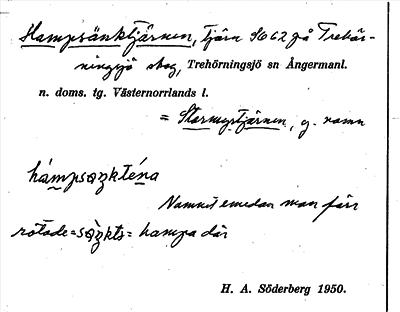 Hampsänktjärnen, Tjärn SO 62 på Trehör-
ningsjö skog, Trehörningsjö sn Ångermanl.
n. doms. tg. Västernorrlands l.
= Stormyrtjärnen, g. namn
Namnet emedan man förr
rötade = = hampa där
H. A. Söderberg 1950.